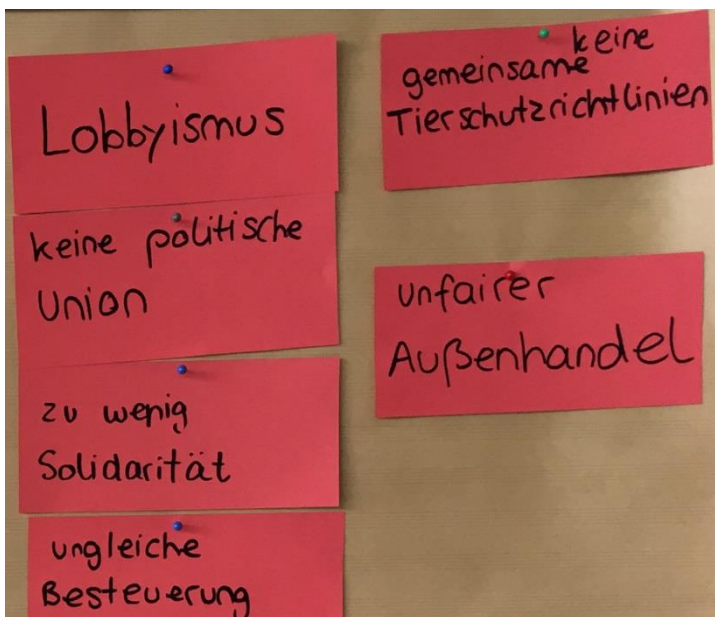 Lobbyismus
keine politische
Union
zu wenig
Solidarität
ungleiche
Besteuerung
keine
gemeinsame
Tierschutzrichtlinien
unfairer
Außenhandel